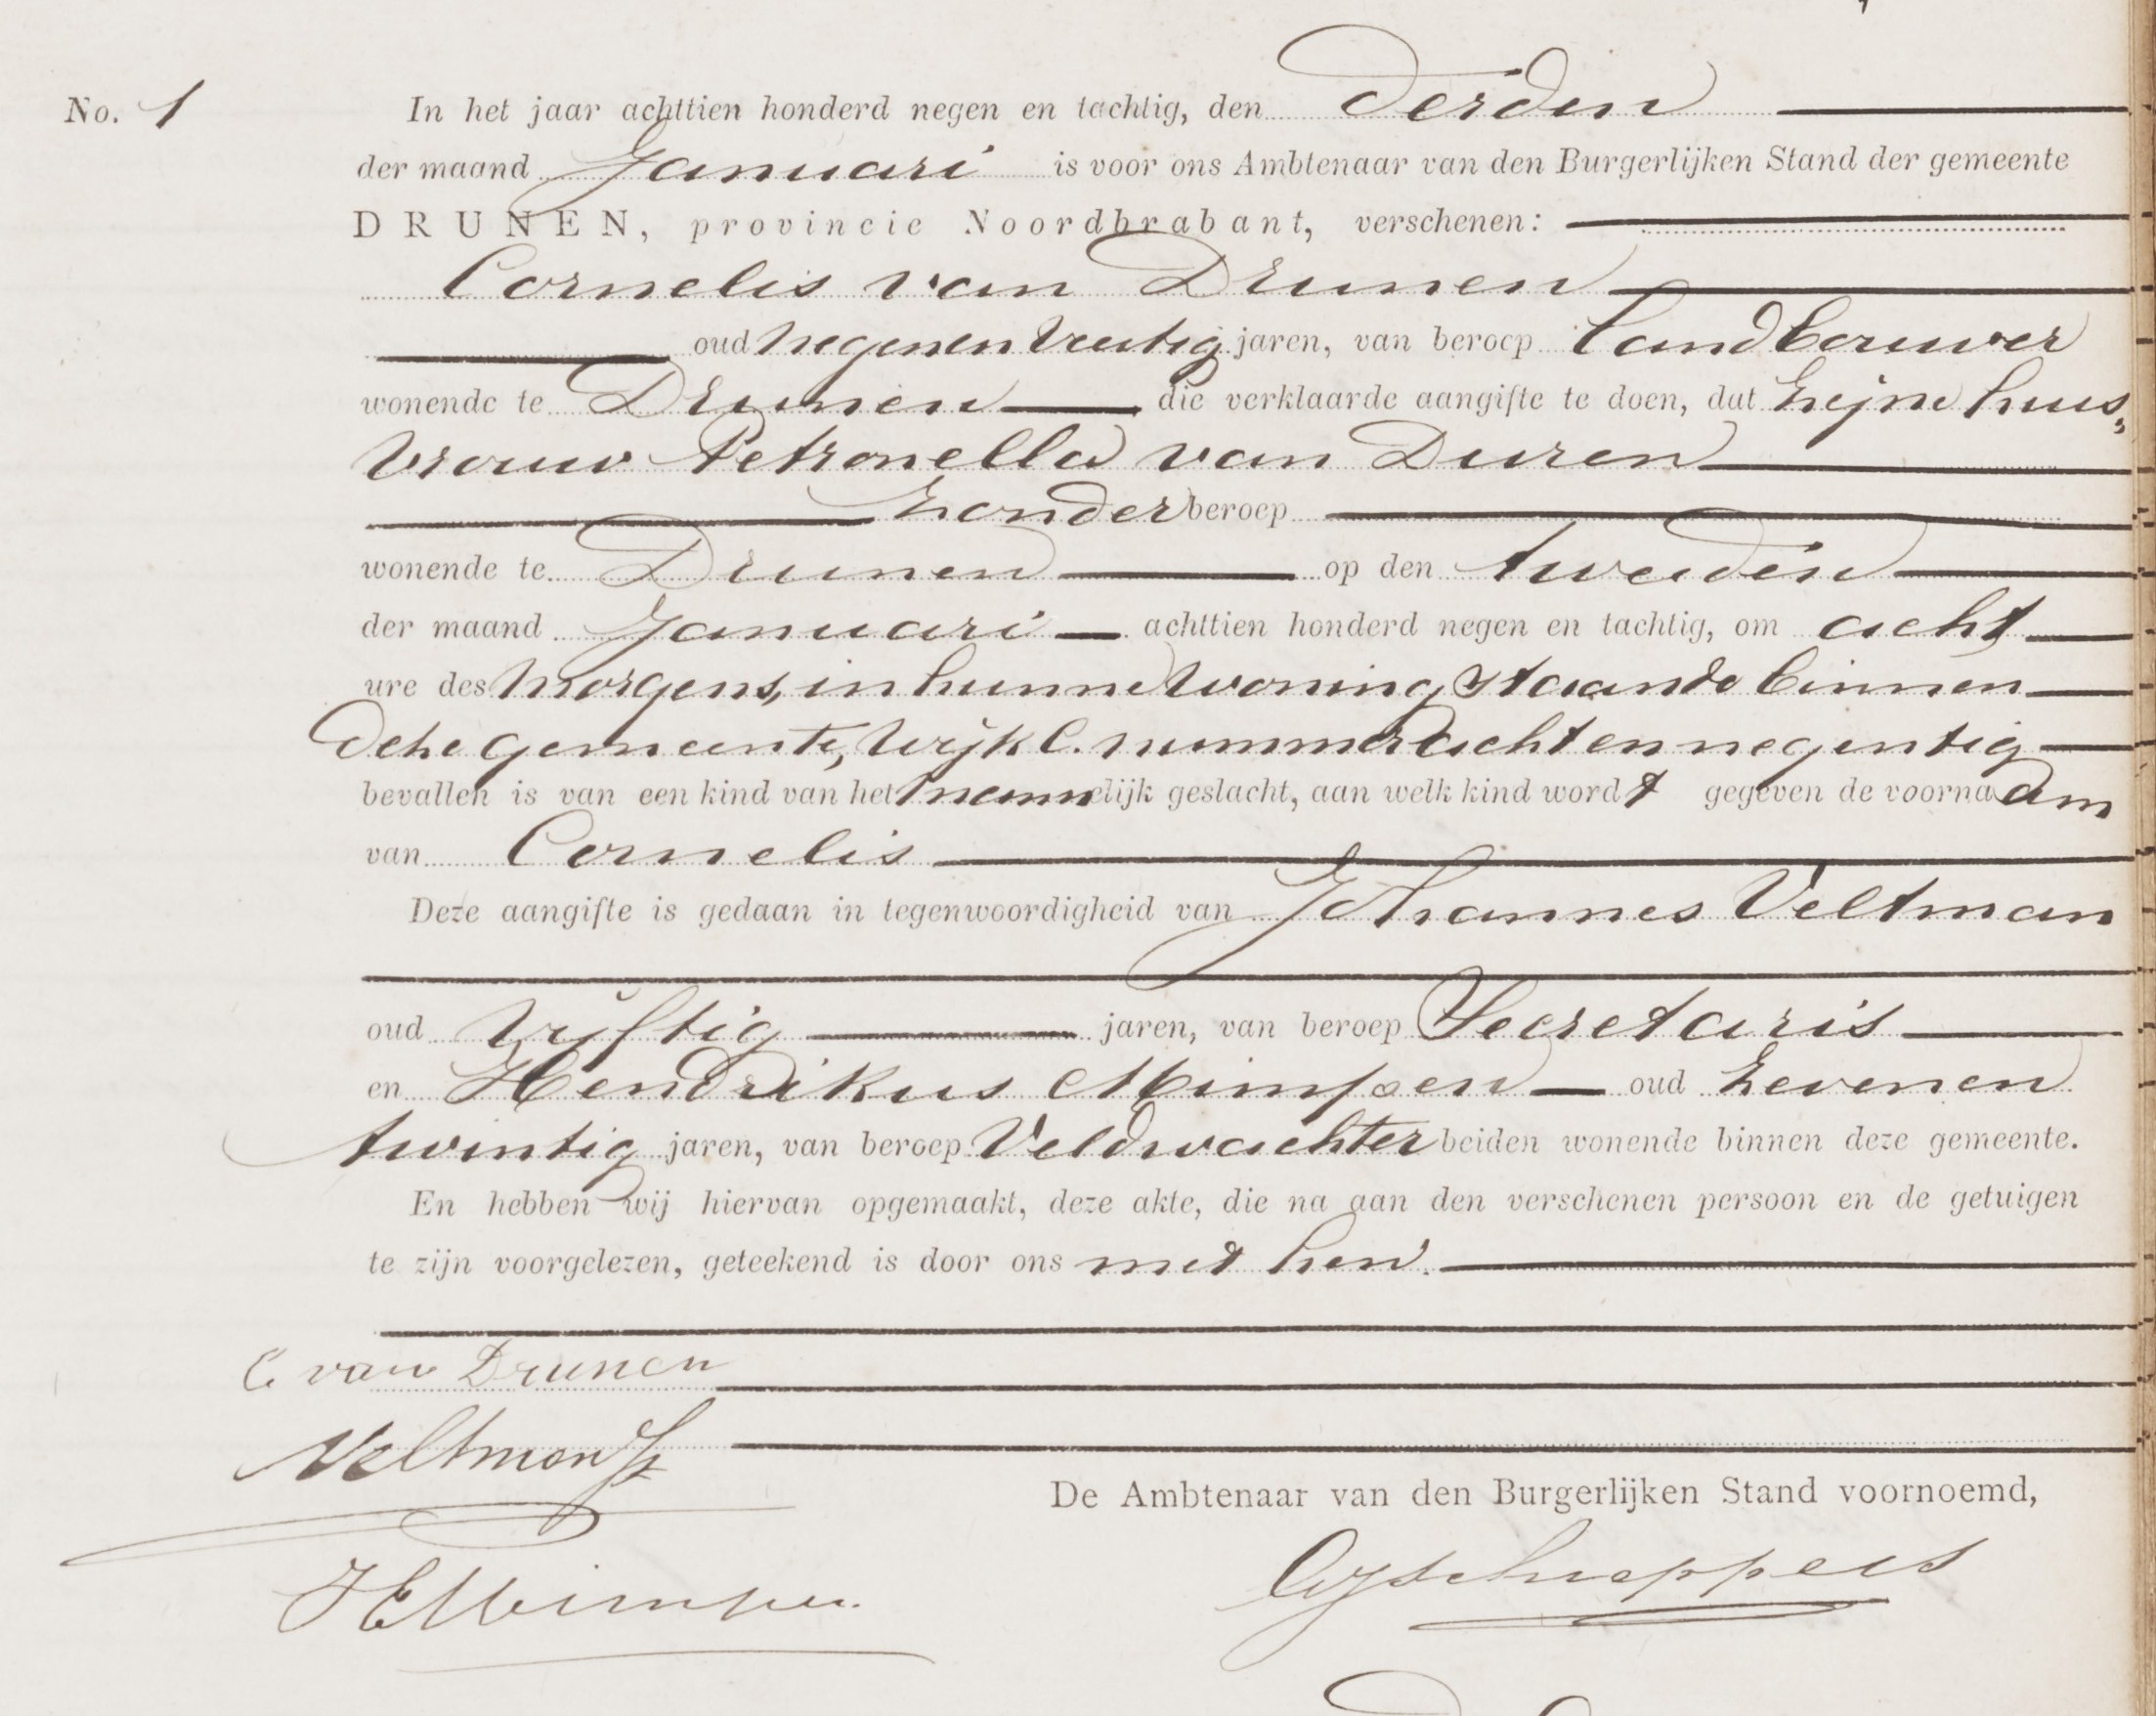 No. 1
In het jaar achttien honderd negen en tachtig, den derden
der maand Januari is voor ons Ambtenaar van den Burgerlijken Stand der gemeente
DRUNEN, provincie Noordbrabant, verschenen:
Cornelis van Drunen
oud negenenveertig jaren, van beroep landbouwer
wonende te Drunen die verklaarde aangifte te doen, dat zijne huis„
vrouw Petronella van Duren
zonder beroep
wonende te Drunen op den tweeden
der maand Januari achttien honderd negen en tachtig, om acht
ure des morgens, in hunne woning staande binnen
deze gemeente, wijk C. nummer achtennegentig
bevallen is van een kind van het mannelijk geslacht, aan welk kind wordt gegeven de voornaam
van Cornelis
Deze aangifte is gedaan in tegenwoordigheid van Johannes Veltman
oud vijftig jaren, van beroep Secretaris
en Hendrikus Mimpen oud zevenen
twintig jaren, van beroep Veldwachter beiden wonende binnen deze gemeente.
En hebben wij hiervan opgemaakt, deze akte, die na aan den verschenen persoon en de getuigen
te zijn voorgelezen, geteekend is door ons met hen.
C van Drunen
Veltman
De Ambtenaar van den Burgerlijken Stand voornoemd,
H Mimpen